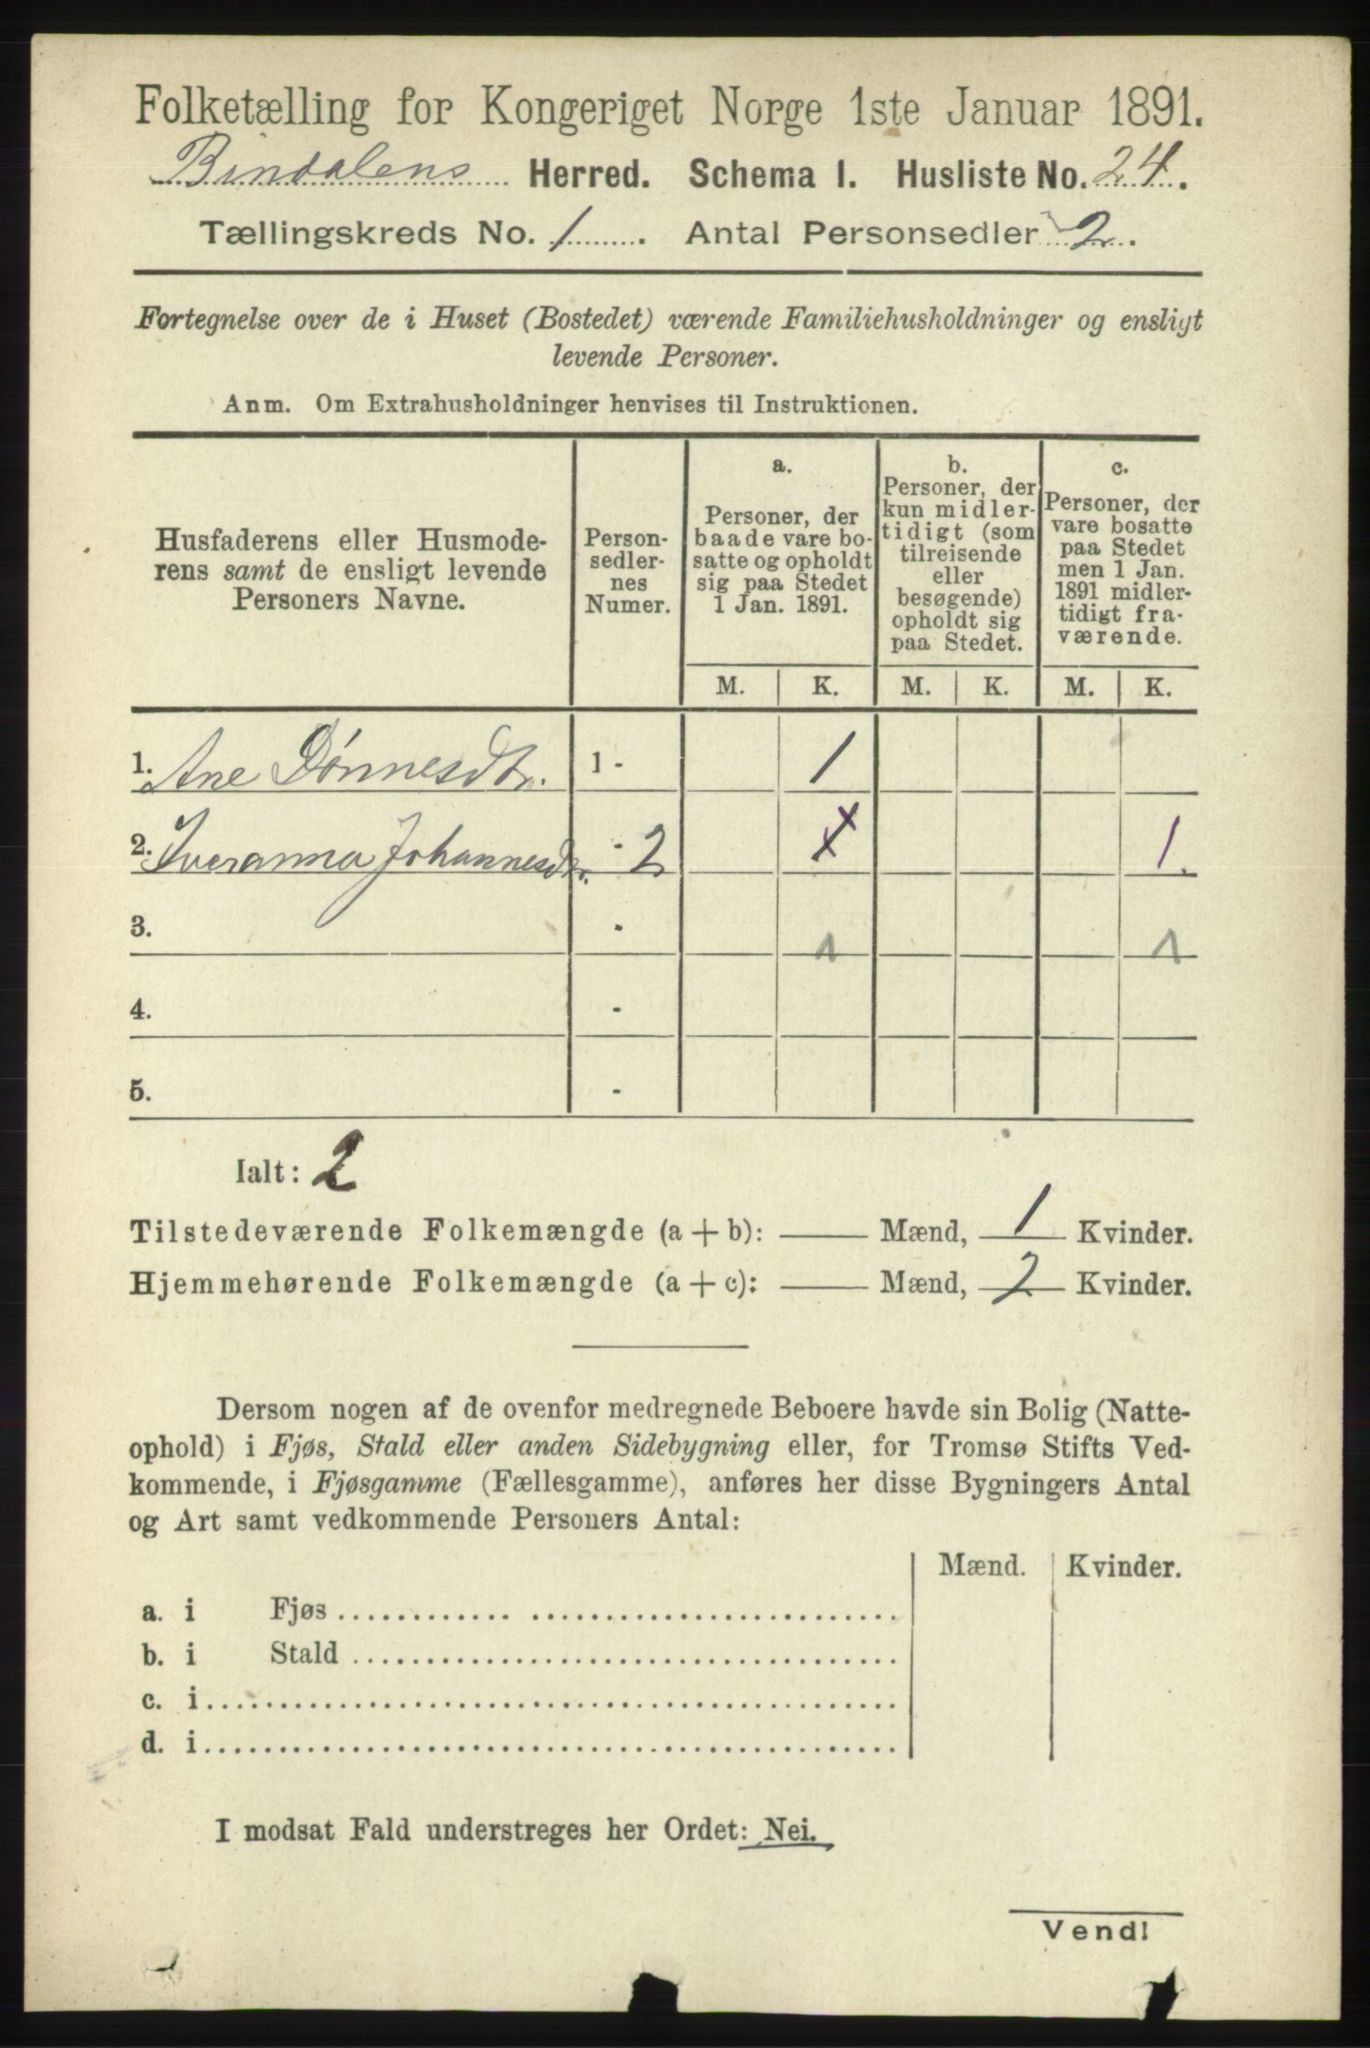 Folketælling for Kongeriget Norge 1ste Januar 1891.
Bindalens Herred. Schema 1. Husliste No. 24.
Tællingskreds No. 1. Antal Personsedler 2.
Fortegnelse over de i Huset (Bostedet) værende Familiehusholdninger og ensligt
levende Personer.
Anm. Om Extrahusholdninger henvises til Instruktionen.
Husfaderens eller Husmode-
rens samt de ensligt levende
Personers Navne.
Person-
sedler-
nes
Numer.
a.
Personer, der
baade vare bo-
satte og opholdt
sig paa Stedet
1 Jan. 1891.
b.
Personer, der
kun midler-
tidigt (som
tilreisende
eller
besøgende)
opholdt sig
paa Stedet.
c.
Personer, der
vare bosatte
paa Stedet
men 1 Jan.
1891 midler-
tidigt fra-
værende.
M. K. M. K. M. K.
1. Ane Dønnesdtr. 1 - 1
2. Iveranna Johannesdtr. - 2 1.
3. - 1 1
4. -
5. -
Ialt: 2
Tilstedeværende Folkemængde (a + b): — Mænd, 1 Kvinder.
Hjemmehørende Folkemængde (a + c): — Mænd, 2 Kvinder.
Dersom nogen af de ovenfor medregnede Beboere havde sin Bolig (Natte-
ophold) i Fjøs, Stald eller anden Sidebygning eller, for Tromsø Stifts Ved-
kommende, i Fjøsgamme (Fællesgamme), anføres her disse Bygningers Antal
og Art samt vedkommende Personers Antal:
Mænd. Kvinder.
a. i Fjøs
b. i Stald
c. i
d. i
I modsat Fald understreges her Ordet: Nei.
Vend!